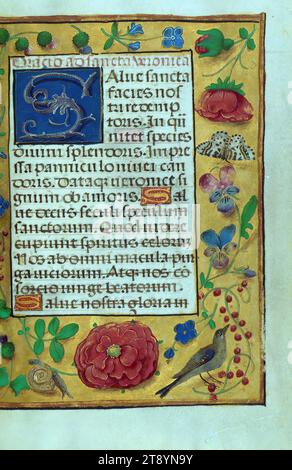 Oracio ad sancta veronica
Salve sancta
facies nos
tri redemp
toris. In qua
nitet species
divini splendoris. Impres
sa panniculo nivei can
doris. Dataq; veronice si
gnum ob amoris. Sal
ve decus seculi speculum
sanctorum. Quod videre
cupiunt spiritus celorum
Nos ab omni macula pur
ga viciorum. Atq; nos con
sorcio iunge beatorum.
Salve nostra gloria in
alamy
Image ID: 2T8YN9Y
www.alamy.com